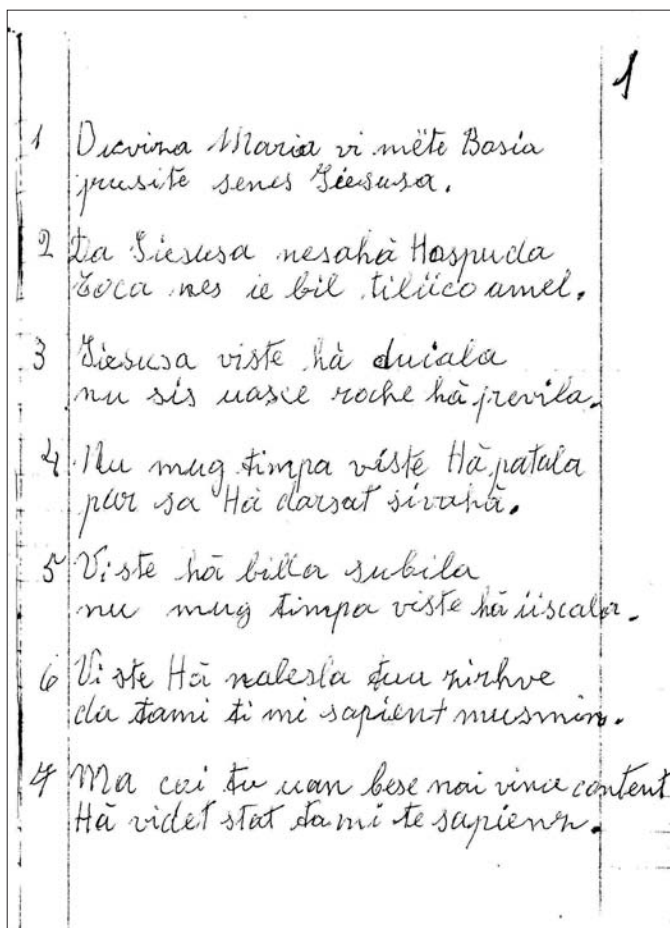 1
1 Divina Maria vi mëte Bosia
prusite senes Giesusa.
2 Da Giesusa nesahà Hospuda
Zoca nes ie bil tilüco amel.
3 Giesusa viste hà duiala
nu sis uasce roche hà previla.
4 Nu mug timpa viste Hà patala
par sa Hà darsat sivahà.
5 Viste hà billa subila
nu mug timpa viste hà üscala.
6 Viste Hà nalesla tuu zirhve
da tami ti mi sapient musmin.
7 Ma coi tu uan bese noi vince content
Hà videt stat tami te sapienz.